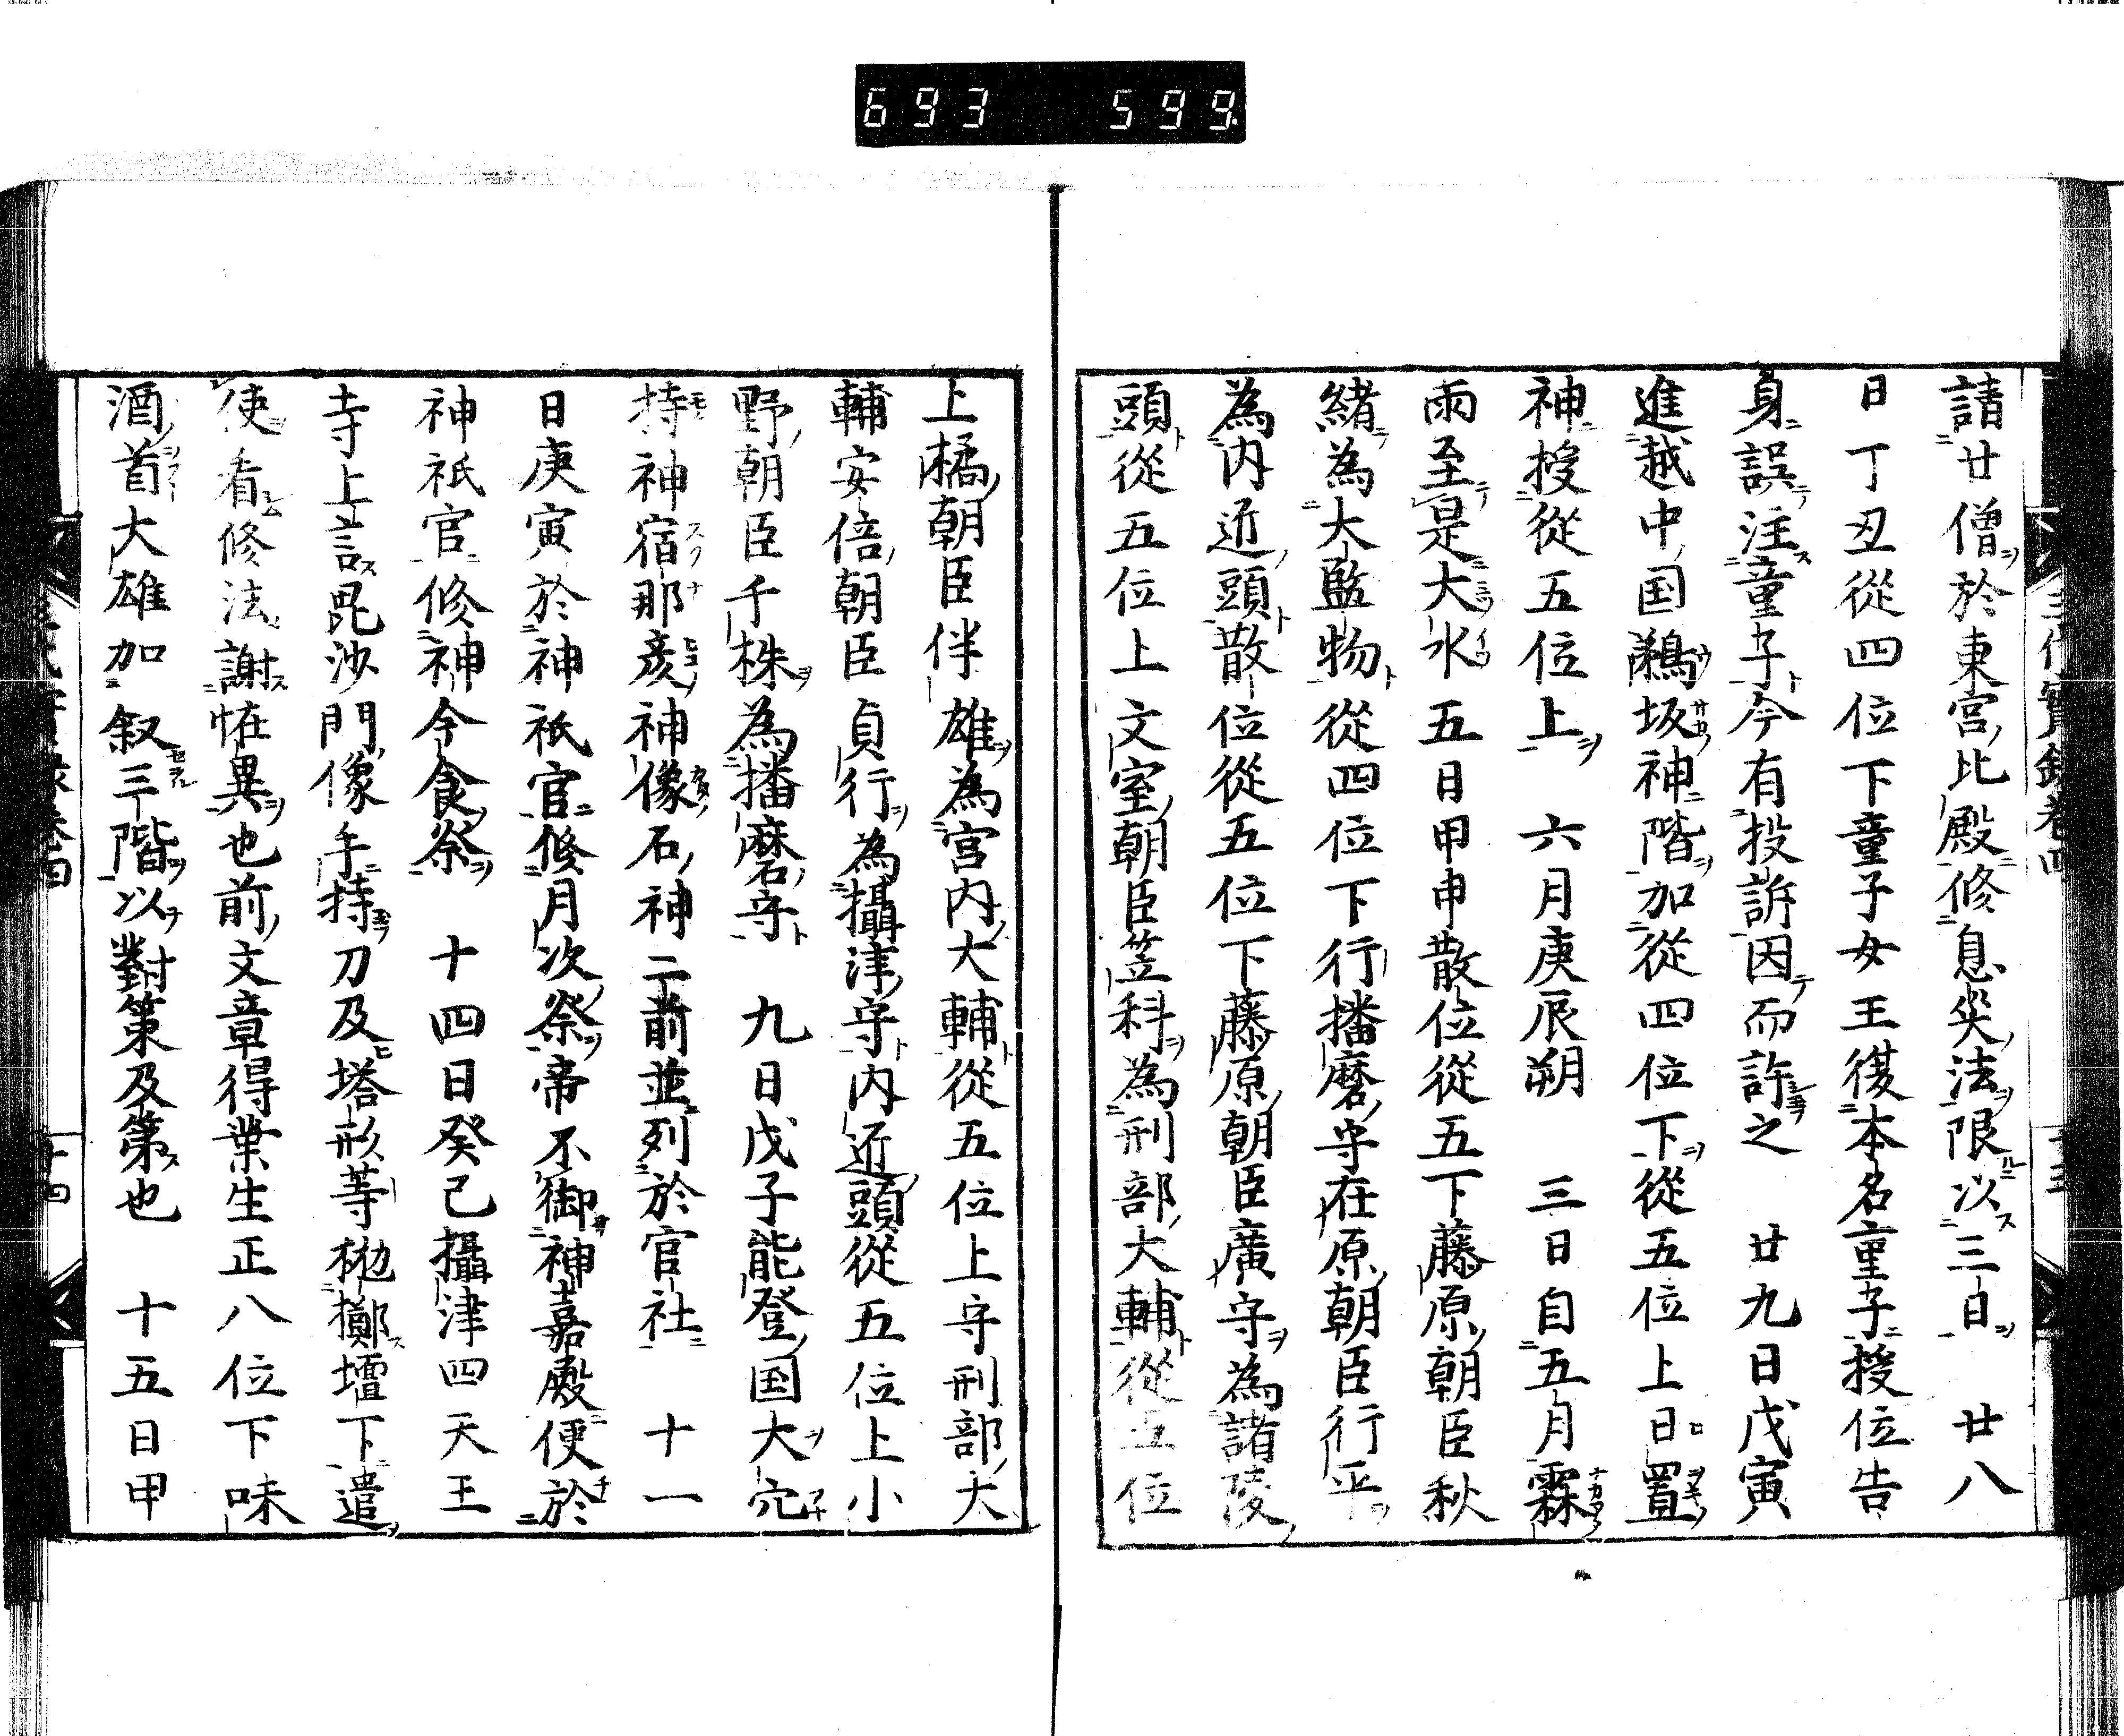 693 599.
請廿僧於東宮比殿修息災法限以三日　廿八
日丁丑從四位下童子女王復本名童子授位告
身誤注童子今有投訴因而許之　廿九日戊寅
進越中国鵜坂神階加從四位下從五位上日置
神授從五位上　六月庚辰朔　三日自五月霖
雨至是大水五日甲申散位從五下藤原朝臣秋
緒為大監物從四位下行播磨守在原朝臣行平
為内匠頭散位從五位下藤原朝臣廣守為諸陵
頭從五位上文室朝臣笠科為刑部大輔從五位
上橘朝臣伴雄為宮内大輔從五位上守刑部大
輔安倍朝臣貞行為攝津守内近頭從五位上小
野朝臣千株為播磨守　九日戊子能登国大穴
持神宿那彦神像石神二前並列於官社　十一
日庚寅於神祇官修月次祭帝不御神嘉殿便於
神祇官修神今食祭　十四日癸己攝津四天王
寺上言毘沙門像手持刀及塔形等抛擲壇下遣
使看修法謝恠異也前文章得業生正八位下味
酒首大雄加叙三階以對策及第也　十五日甲